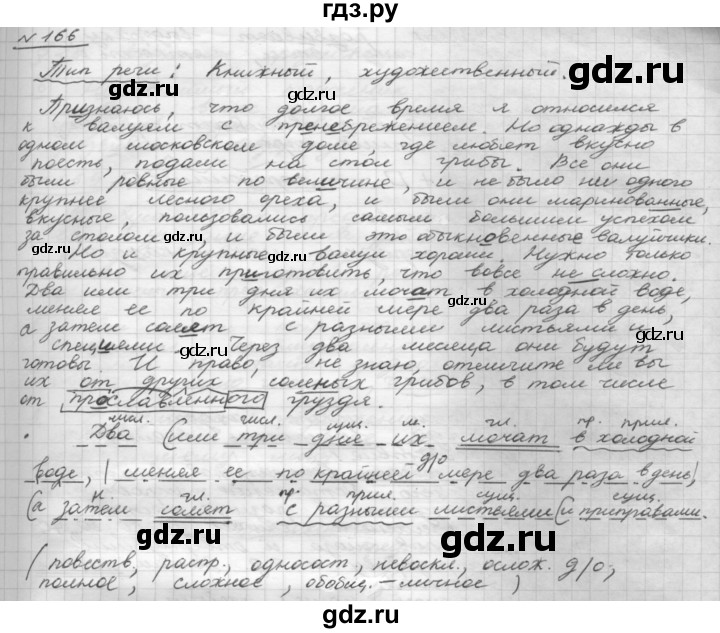 гдз.ру
№ 166
Тип речи: Книжный, художественный.
Признаюсь, что долгое время я относился
к валуям с пренебрежением. Но однажды в
одном московском доме, где любят вкусно
поесть, подали на стол грибы. Все они
были ровные по величине, и не было ни одного
крупнее лесного ореха, и были они маринованные,
вкусные, пользовались самым большим успехом
за столом, и были это обыкновенные валуйчики.
Но и крупные валуи хороши. Нужно только
правильно их приготовить, что вовсе не сложно.
Два или три дня их мочат в холодной воде,
меняя ее по крайней мере два раза в день,
а затем солят с разными листьями и
специями. Через два месяца они будут
готовы. И право, не знаю, отличите ли вы
их от других соленых грибов, в том числе
от прославленного груздя.
числ. числ. сущ. м. гл. пр. прил.
Два (или три дня их мочат в холодной
д/о
воде, | меняя ее по крайней мере два раза в день|
н. гл. пр. прил. сущ. сущ.
(а затем солят с разными листьями (и приправами.
(повеств, распр., односост, невоскл., ослож. д/о,
полное, сложное, обобщ.-личное)
gdz.ru
gdz.ru
gdz.ru
gdz.ru
gdz.ru
gdz.ru
gdz.ru
gdz.ru
gdz.ru
gdz.ru
gdz.ru
gdz.ru
gdz.ru
gdz.ru